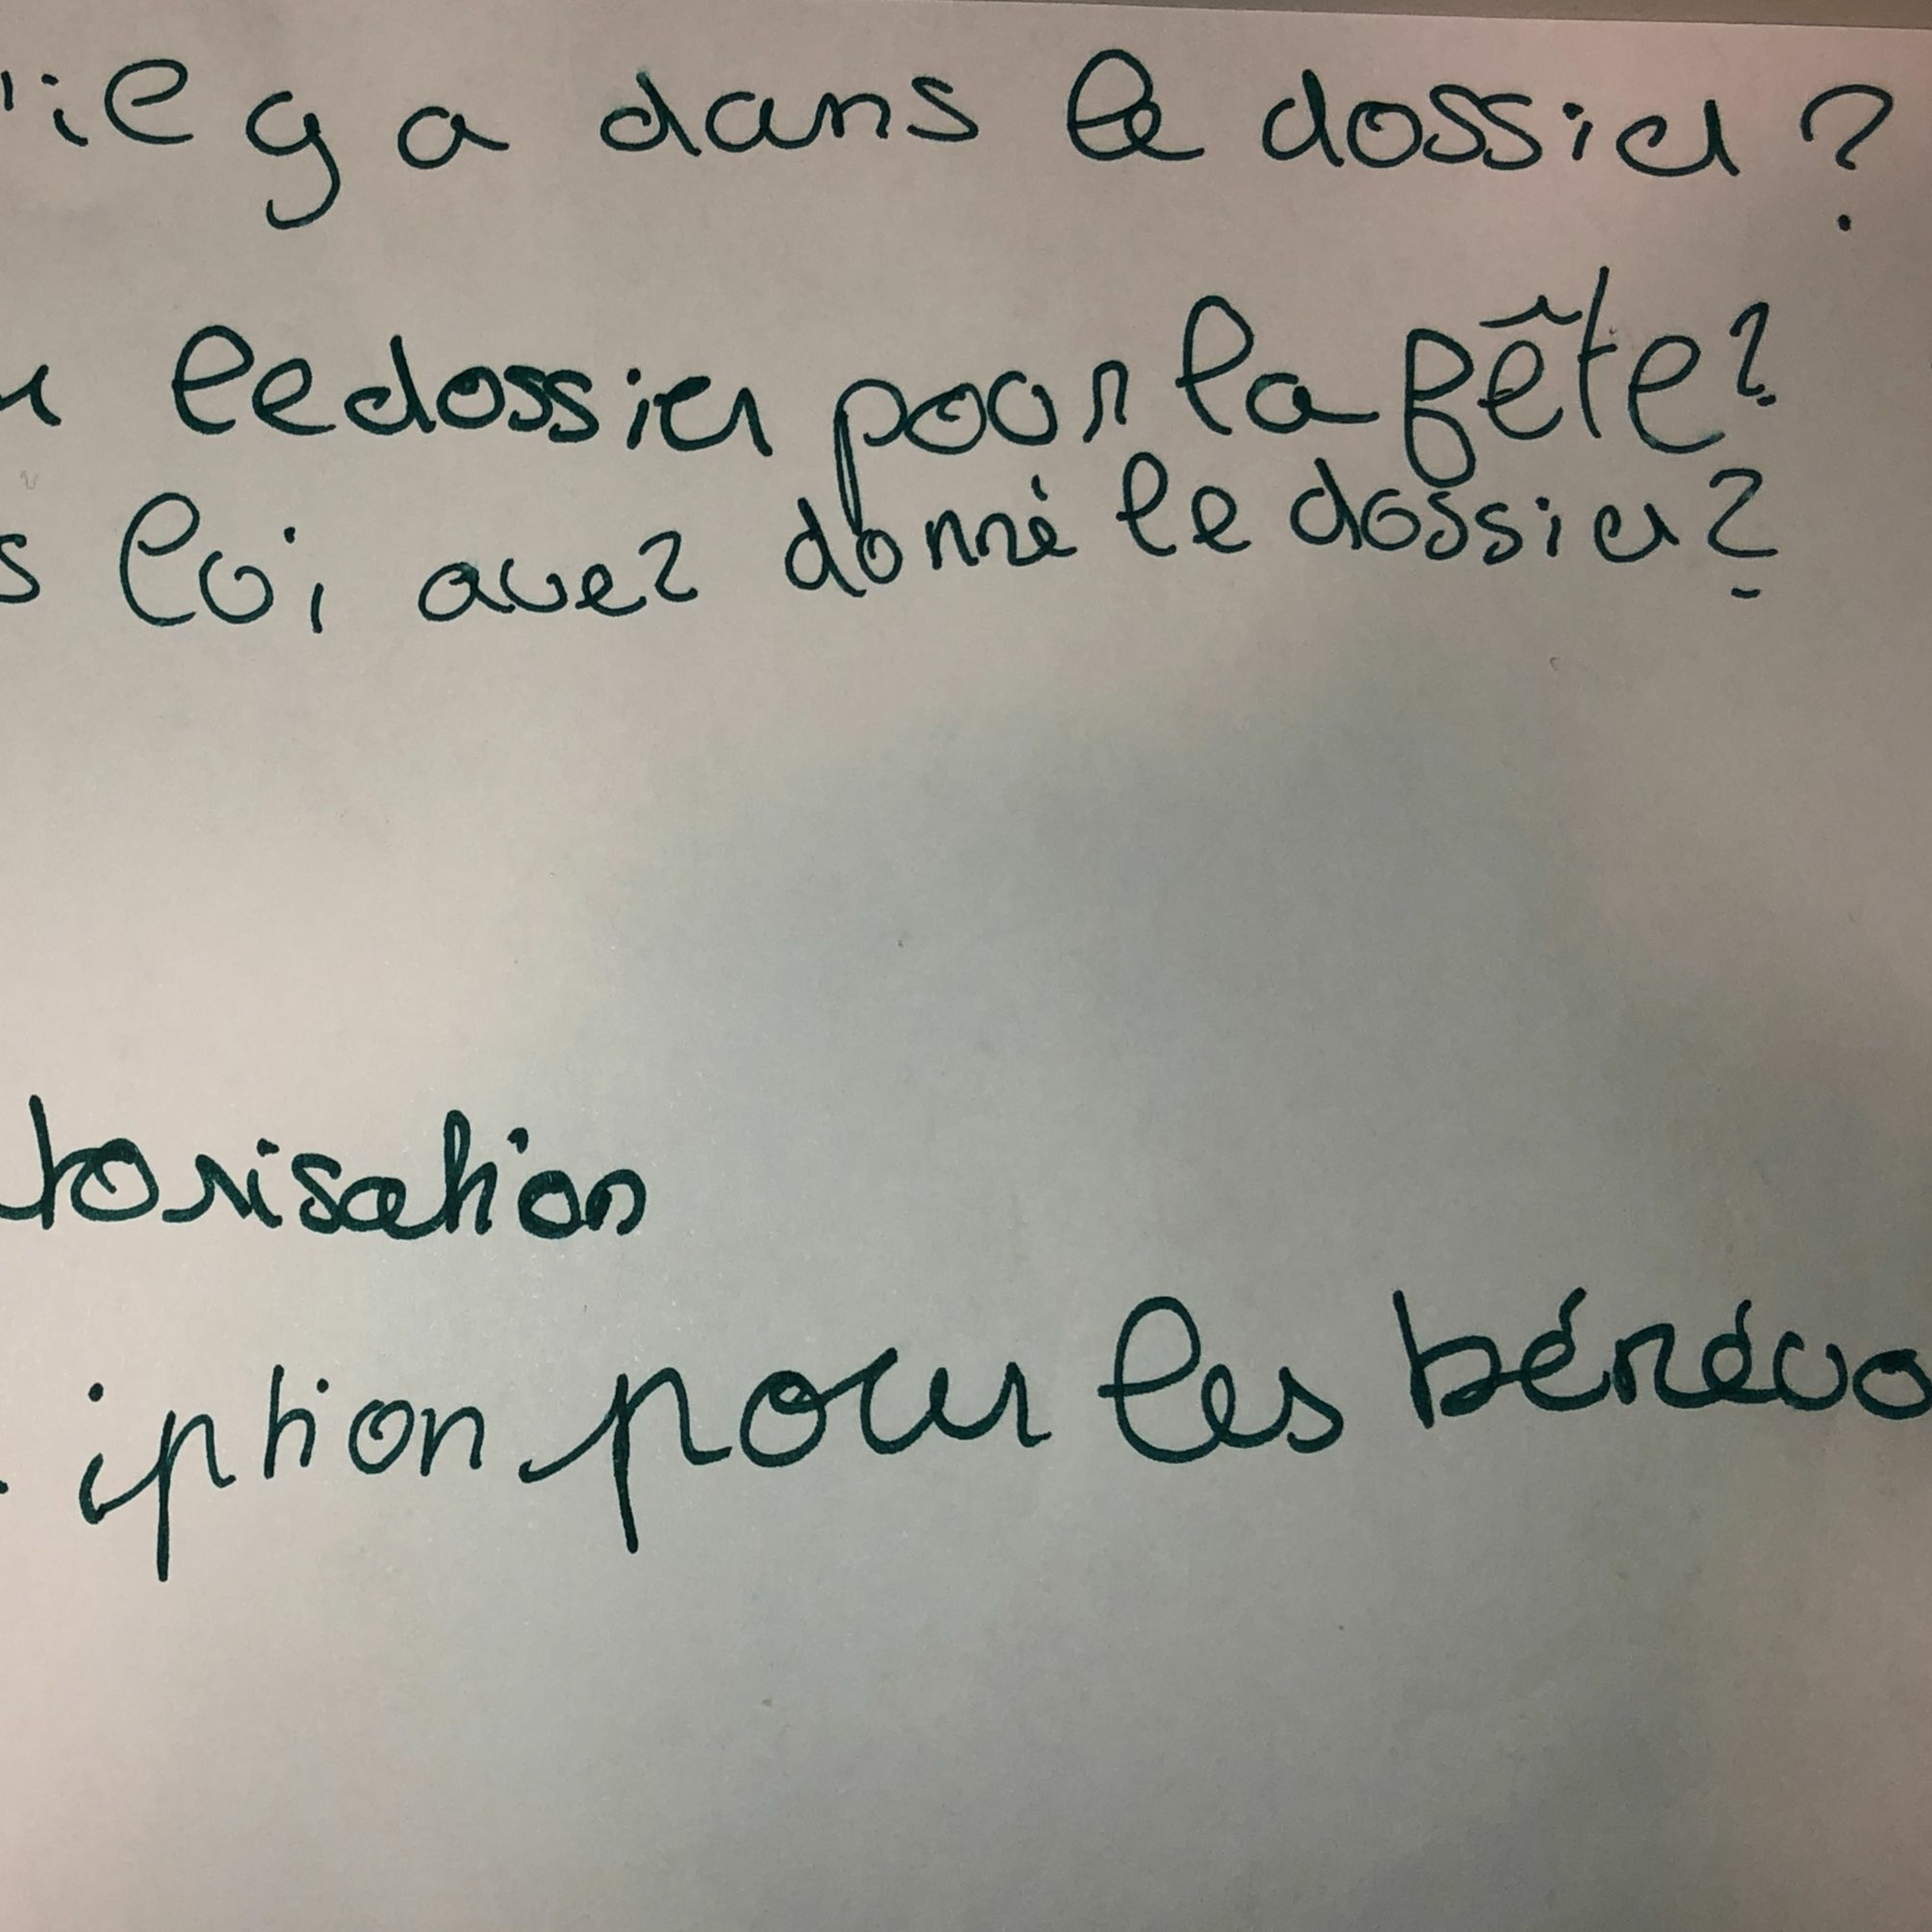 'il y a dans le dossier ?
u le dossier pour la fête ?
s lui avez donné le dossier ?
torisation
iption pour les bénévo